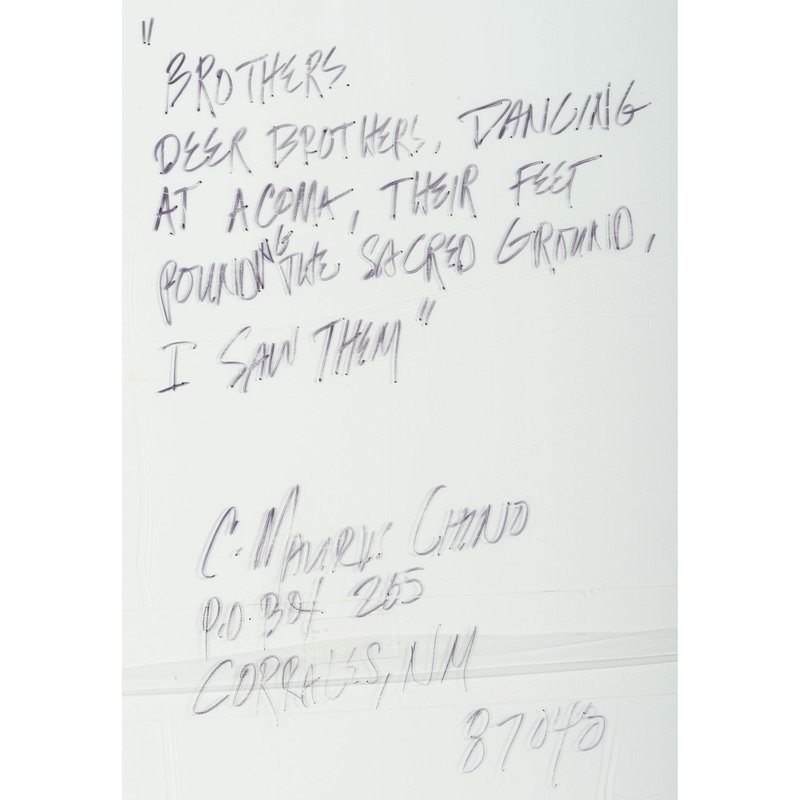 "BROTHERS.
DEER BROTHERS, DANCING
AT ACOMA, THEIR FEET
POUNDING THE SACRED GROUND,
I SAW THEM"
C. MAURUS CHINO
P.O. BOX 265
CORRALES, NM
87048